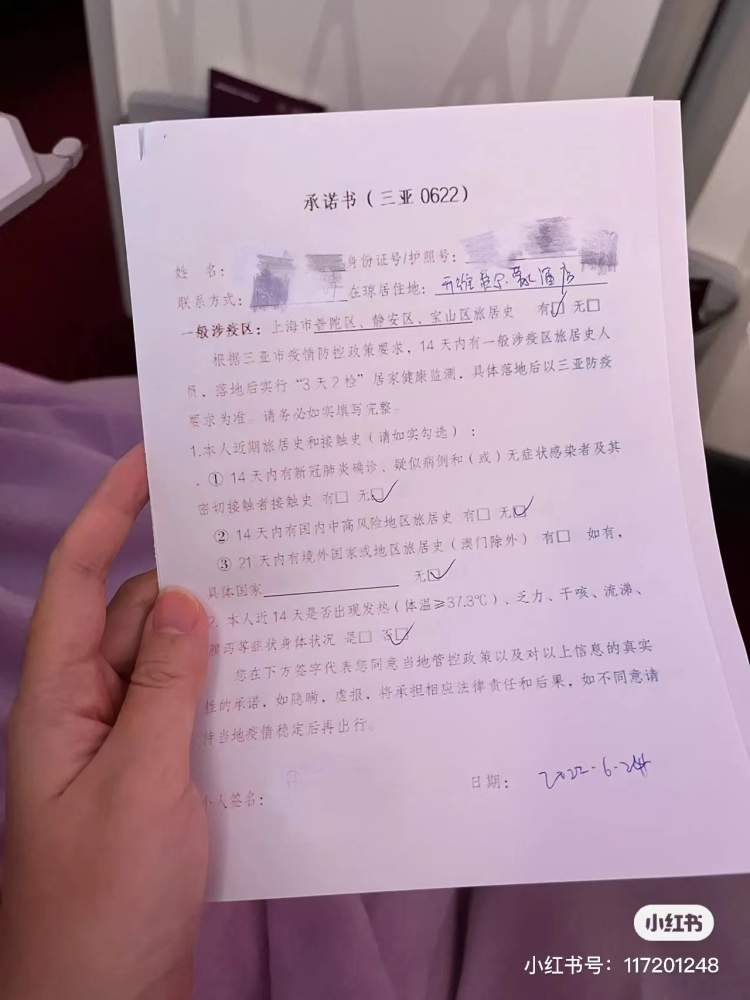 承诺书（三亚 0622）
姓 名： 身份证号/护照号：
联系方式： 在琼居住地： 酒店
一般涉疫区：上海市普陀区、静安区、宝山区旅居史 有□ 无□
根据三亚市疫情防控政策要求，14天内有一般涉疫区旅居史人
员，落地后实行“3天2检”居家健康监测，具体落地后以三亚防疫
要求为准。请务必如实填写完整。
1.本人近期旅居史和接触史（请如实勾选）：
① 14天内有新冠肺炎确诊、疑似病例和（或）无症状感染者及其
密切接触者接触史 有□ 无□
② 14天内有国内中高风险地区旅居史 有□ 无□
③ 21天内有境外国家或地区旅居史（澳门除外） 有□ 如有，
具体国家 无□
2. 本人近14天是否出现发热（体温≥37.3℃）、乏力、干咳、流涕、
腹泻等症状身体状况 是□ 否□
您在下方签字代表您同意当地管控政策以及对以上信息的真实
性的承诺，如隐瞒，虚报，将承担相应法律责任和后果，如不同意请
待当地疫情稳定后再出行。
本人签名： 日期： 2022-6-24
小红书
小红书号：117201248